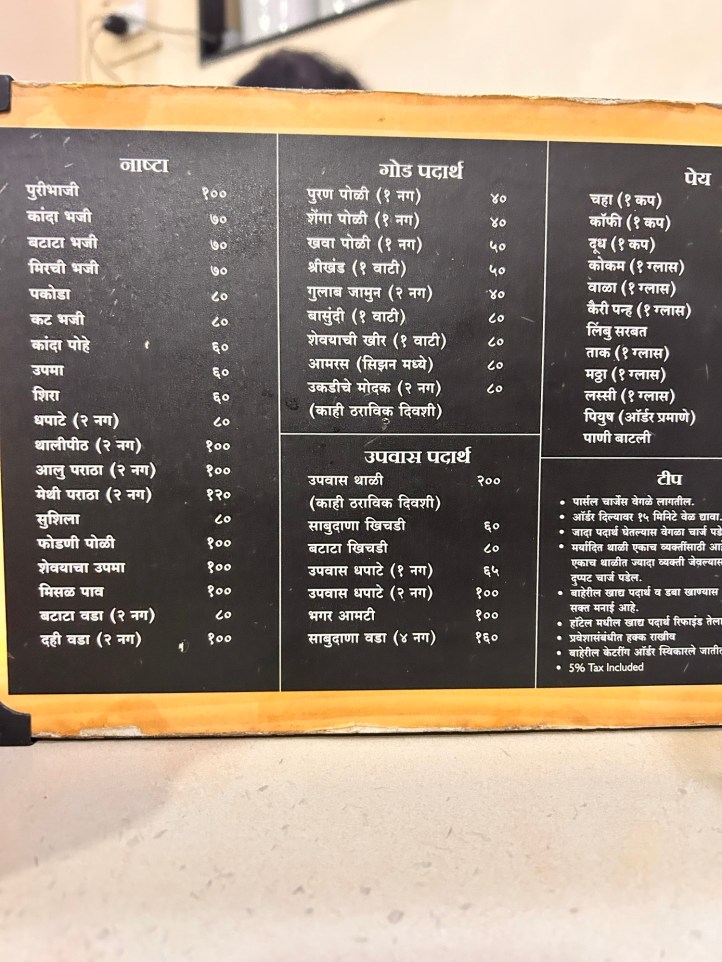 नाष्टा
पुरीभाजी १००
कांदा भजी ७०
बटाटा भजी ७०
मिरची भजी ७०
पकोडा ८०
कट भजी ८०
कांदा पोहे ६०
उपमा ६०
शिरा ६०
धपाटे (२ नग) ८०
थालीपीठ (२ नग) १००
आलु पराठा (२ नग) १००
मेथी पराठा (२ नग) १२०
सुशिला ८०
फोडणी पोळी १००
शेवयाचा उपमा १००
मिसळ पाव १००
बटाटा वडा (२ नग) ८०
दही वडा (२ नग) १००
गोड पदार्थ
पुरण पोळी (१ नग) ४०
शेंगा पोळी (१ नग) ४०
खवा पोळी (१ नग) ५०
श्रीखंड (१ वाटी) ५०
गुलाब जामुन (२ नग) ४०
बासुंदी (१ वाटी) ८०
शेवयाची खीर (१ वाटी) ८०
आमरस (सिझन मध्ये) ८०
उकडीचे मोदक (२ नग) ८०
(काही ठराविक दिवशी)
उपवास पदार्थ
उपवास थाळी २००
(काही ठराविक दिवशी)
साबुदाणा खिचडी ६०
बटाटा खिचडी ८०
उपवास धपाटे (१ नग) ६५
उपवास धपाटे (२ नग) १००
भगर आमटी १००
साबुदाणा वडा (४ नग) १६०
पेय
चहा (१ कप)
कॉफी (१ कप)
दूध (१ कप)
कोकम (१ ग्लास)
वाळा (१ ग्लास)
कैरी पन्ह (१ ग्लास)
लिंबु सरबत
ताक (१ ग्लास)
मठ्ठा (१ ग्लास)
लस्सी (१ ग्लास)
पियुष (ऑर्डर प्रमाणे)
पाणी बाटली
टीप
• पार्सल चार्जेस वेगळे लागतील.
• ऑर्डर दिल्यावर १५ मिनिटे वेळ द्यावा.
• जादा पदार्थ घेतल्यास वेगळा चार्ज
• मर्यादित थाळी एकाच व्यक्तींसाठी
एकाच थाळीत ज्यादा व्यक्ती जेवल्यास
दुप्पट चार्ज पडेल.
• बाहेरील खाद्य पदार्थ व डबा खाण्यास
सक्त मनाई आहे.
• हॉटेल मधील खाद्य पदार्थ रिफाइंड
• प्रवेशासंबंधीत हक्क राखीव
• बाहेरील केटरींग ऑर्डर स्विकारले
• 5% Tax Included